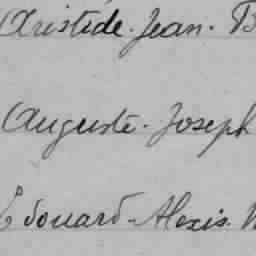 Aristide. Jean. B
Auguste. Joseph
Edouard. Alexis.